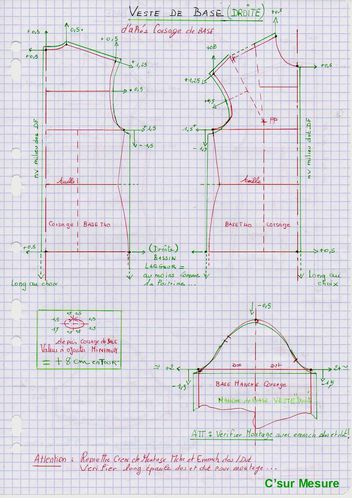 VESTE DE BASE (DROITE)
d'après Corsage de BASE
+0,5
+0,5
+0,5
+0,8
+1,25
+1,25
+0,5
+0,5
PP
+1,5
1,5+
-1,5
-1,5
nv milieu dos DF
nv milieu dvt DF
taille
taille
Corsage BASE Tho
BASE Tho corsage
+0,5
(Droite)
+0,5
BASSIN
Largeur =
au moins comme
la Poitrine...
Long au choix
Long au
choix
depuis corsage de BASE
Valeurs à ajouter MINIMUM
= +8 cm EnTOUR
-0,5
+2
2+
-1,5
-1,5
DOS
DVT
BASE MANCHE Corsage
MANCHE de BASE VESTE Droite
ATT: Vérifier Montage avec emmanch dos et dvt!
Attention : Remettre Crans de Montage Mche et Emmanch dos/Dvt
Vérifier long épaules dos et dvt pour montage...
C'sur Mesure